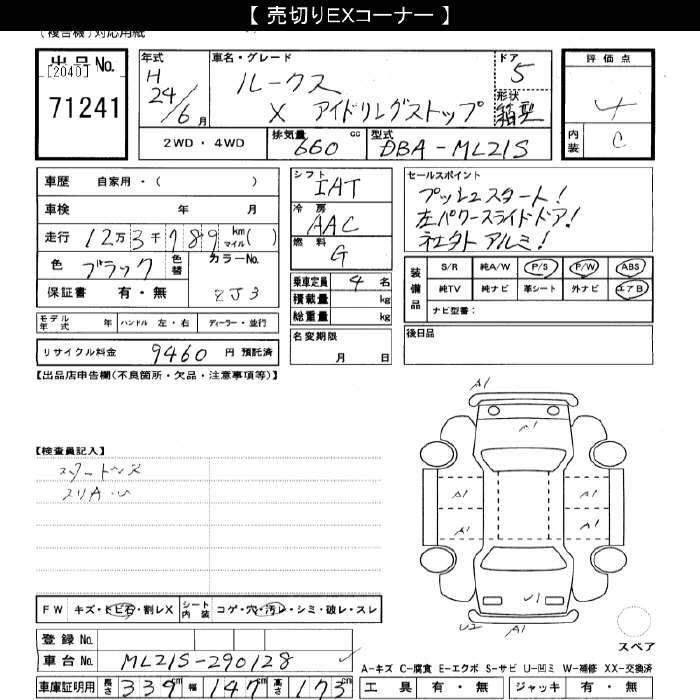 【 売切りEXコーナー 】
(複合機)対応用紙
出品No. [2040] 71241
年式 H 24/6月
車名・グレード ルークス X アイドリングストップ
ドア 5
形状 箱型
評価点 4
内装 C
2WD・4WD 排気量 660 cc 型式 DBA-ML21S
車歴 自家用・( )
車検 年 月
走行 12万3千789 km マイル( )
色 ブラック 色替 カラーNo. ZJ3
保証書 有・無
シフト IAT
冷房 AAC
燃料 G
乗車定員 4 名
積載量 kg
総重量 kg
セールスポイント
プッシュスタート!
左パワースライドドア!
社外アルミ!
装備品 S/R 純A/W P/S P/W ABS
純TV 純ナビ 革シート 外ナビ エアB
ナビ型番:
モデル年式 年 ハンドル 左・右 ディーラー・並行
リサイクル料金 9460 円 預託済
名変期限 月 日
後日品
【出品店申告欄(不良箇所・欠品・注意事項等)】
【検査員記入】
A1
A1
A1 A1
A1 A1
U1
U2 A1
スペア
FW キズ・トビ石・割レX シート内装 コゲ・穴・汚レ・シミ・破レ・スレ
登録No.
車台No. ML21S-290128
車庫証明用 長さ 339cm 幅 147cm 高さ 173cm
A-キズ C-腐食 E-エクボ S-サビ U-凹ミ W-補修 XX-交換済
工具 有・無 ジャッキ 有・無